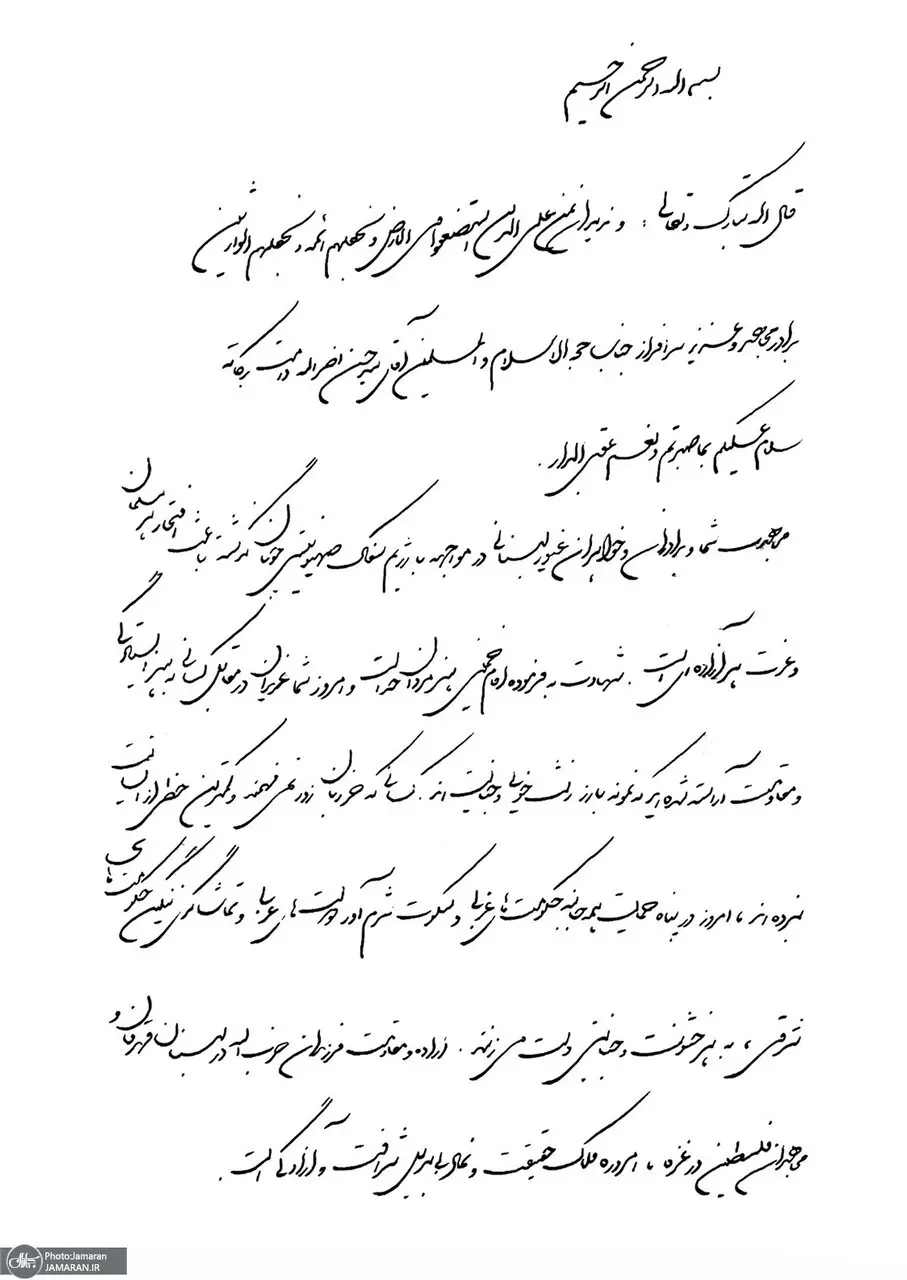 بسم الله الرحمن الرحیم
قال الله تبارک و تعالی : و نرید ان نمن علی الذین استضعفوا فی الارض و نجعلهم ائمه و نجعلهم الوارثین
برادر مجاهد و عزیز سرافراز جناب حجه الاسلام و المسلمین آقای سید حسن نصراله دامت برکاته
سلام علیکم بما صبرتم و نعم عقبی الدار .
مجاهدت شما و برادران و خواهران غیور لبنانی در مواجهه با رژیم سفاک صهیونیستی چونان گذشته باعث افتخار هر مسلمان
و عزت هر آزاده ای است . شهادت به فرموده امام خمینی هنر مردان خداست و امروز شما عزیزان در مقابل کسانی به هنر ایستادگی
و مقاومت آراسته شده اید که نمونه بارز زشت خویی و جنایت اند . کسانی که جز زبان زور نمی فهمند و کمترین حظی از انسانیت
نبرده اند ، امروز در پناه حمایت همه جانبه حکومت های غربی و سکوت شرم آور دولت های عربی و تماشاگری ننگین حکومت های
شرقی ، به هر خشونت و جنایتی دست می زنند . اراده و مقاومت فرزندان حزب اله در لبنان قهرمان و
مجاهدان فلسطین در غزه ، امروزه ملاک حقیقت و نماد بی بدیل شرافت و آزادگی است .
Photo:Jamaran
JAMARAN.IR